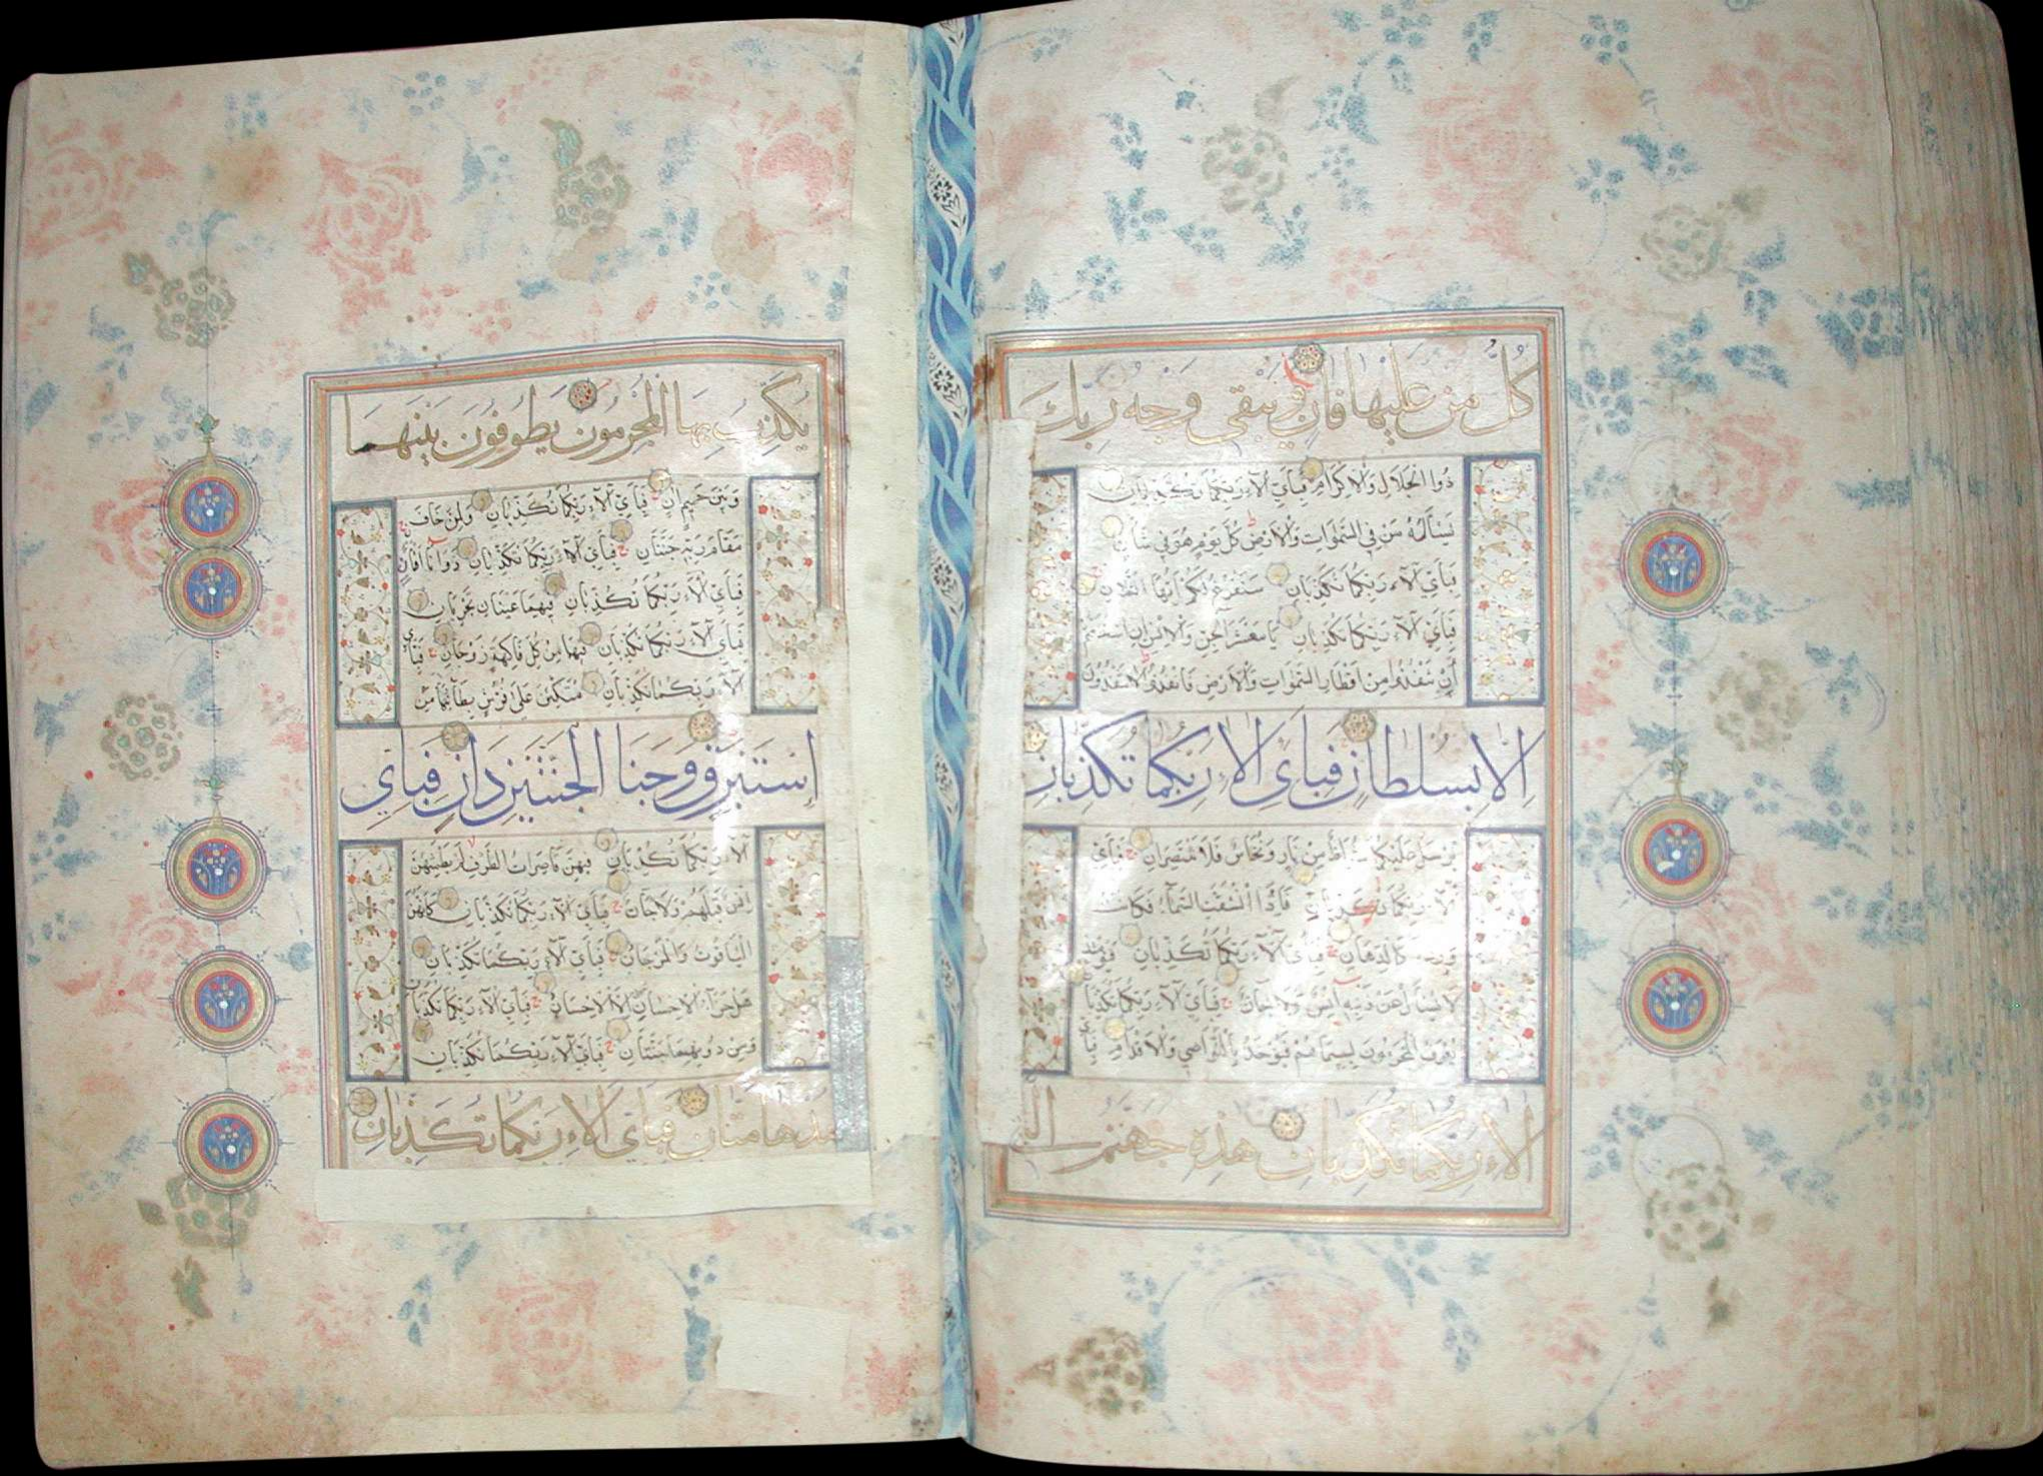 كُلُّ مَنْ عَلَيْهَا فَانٍ وَيَبْقَى وَجْهُ رَبِّكَ
ذُوا الْجَلَالِ وَالْاِكْرَامِ فَبِأَيِّ اٰلَآءِ رَبِّكُمَا تُكَذِّبَانِ
يَسْأَلُهُ مَنْ فِي السَّمٰوَاتِ وَالْاَرْضِ كُلَّ يَوْمٍ هُوَ فِي شَأْنٍ
فَبِأَيِّ اٰلَآءِ رَبِّكُمَا تُكَذِّبَانِ سَنَفْرُغُ لَكُمْ اَيُّهَا الثَّقَلَانِ
فَبِأَيِّ اٰلَآءِ رَبِّكُمَا تُكَذِّبَانِ يَا مَعْشَرَ الْجِنِّ وَالْاِنْسِ اِنِ اسْتَطَعْتُمْ
اَنْ تَنْفُذُوا مِنْ اَقْطَارِ السَّمٰوَاتِ وَالْاَرْضِ فَانْفُذُوا لَا تَنْفُذُونَ
اِلَّا بِسُلْطَانٍ فَبِاَيِّ اٰلَاءِ رَبِّكُمَا تُكَذِّبَانِ
يُرْسَلُ عَلَيْكُمَا شُوَاظٌ مِنْ نَارٍ وَنُحَاسٌ فَلَا تَنْتَصِرَانِ فَبِأَيِّ
اٰلَآءِ رَبِّكُمَا تُكَذِّبَانِ فَاِذَا انْشَقَّتِ السَّمَآءُ فَكَانَتْ
وَرْدَةً كَالدِّهَانِ فَبِأَيِّ اٰلَآءِ رَبِّكُمَا تُكَذِّبَانِ فَيَوْمَئِذٍ
لَا يُسْأَلُ عَنْ ذَنْبِهِ اِنْسٌ وَلَا جَآنٌّ فَبِأَيِّ اٰلَآءِ رَبِّكُمَا تُكَذِّبَانِ
يُعْرَفُ الْمُجْرِمُونَ بِسِيمَاهُمْ فَيُؤْخَذُ بِالنَّوَاصِي وَالْاَقْدَامِ فَبِأَيِّ
اٰلَاءِ رَبِّكُمَا تُكَذِّبَانِ هٰذِهِ جَهَنَّمُ الَّتِي
يُكَذِّبُ بِهَا الْمُجْرِمُونَ يَطُوفُونَ بَيْنَهَا
وَبَيْنَ حَمِيمٍ اٰنٍ فَبِأَيِّ اٰلَآءِ رَبِّكُمَا تُكَذِّبَانِ وَلِمَنْ خَافَ
مَقَامَ رَبِّهِ جَنَّتَانِ فَبِأَيِّ اٰلَآءِ رَبِّكُمَا تُكَذِّبَانِ ذَوَاتَا اَفْنَانٍ
فَبِأَيِّ اٰلَآءِ رَبِّكُمَا تُكَذِّبَانِ فِيهِمَا عَيْنَانِ تَجْرِيَانِ
فَبِأَيِّ اٰلَآءِ رَبِّكُمَا تُكَذِّبَانِ فِيهِمَا مِنْ كُلِّ فَاكِهَةٍ زَوْجَانِ فَبِأَيِّ
اٰلَآءِ رَبِّكُمَا تُكَذِّبَانِ مُتَّكِئِينَ عَلَى فُرُشٍ بَطَآئِنُهَا مِنْ
اِسْتَبْرَقٍ وَجَنَا الْجَنَّتَيْنِ دَانٍ فَبِاَيِّ
اٰلَآءِ رَبِّكُمَا تُكَذِّبَانِ فِيهِنَّ قَاصِرَاتُ الطَّرْفِ لَمْ يَطْمِثْهُنَّ
اِنْسٌ قَبْلَهُمْ وَلَا جَآنٌّ فَبِأَيِّ اٰلَآءِ رَبِّكُمَا تُكَذِّبَانِ كَاَنَّهُنَّ
الْيَاقُوتُ وَالْمَرْجَانُ فَبِأَيِّ اٰلَآءِ رَبِّكُمَا تُكَذِّبَانِ
هَلْ جَزَآءُ الْاِحْسَانِ اِلَّا الْاِحْسَانُ فَبِأَيِّ اٰلَآءِ رَبِّكُمَا تُكَذِّبَانِ
وَمِنْ دُونِهِمَا جَنَّتَانِ فَبِأَيِّ اٰلَآءِ رَبِّكُمَا تُكَذِّبَانِ
مُدْهَامَّتَانِ فَبِاَيِّ اٰلَاءِ رَبِّكُمَا تُكَذِّبَانِ